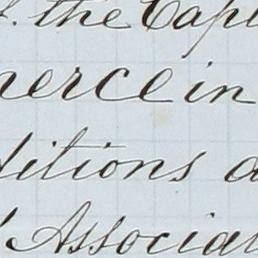 . the Capi
nerce in
ditions a
Associat